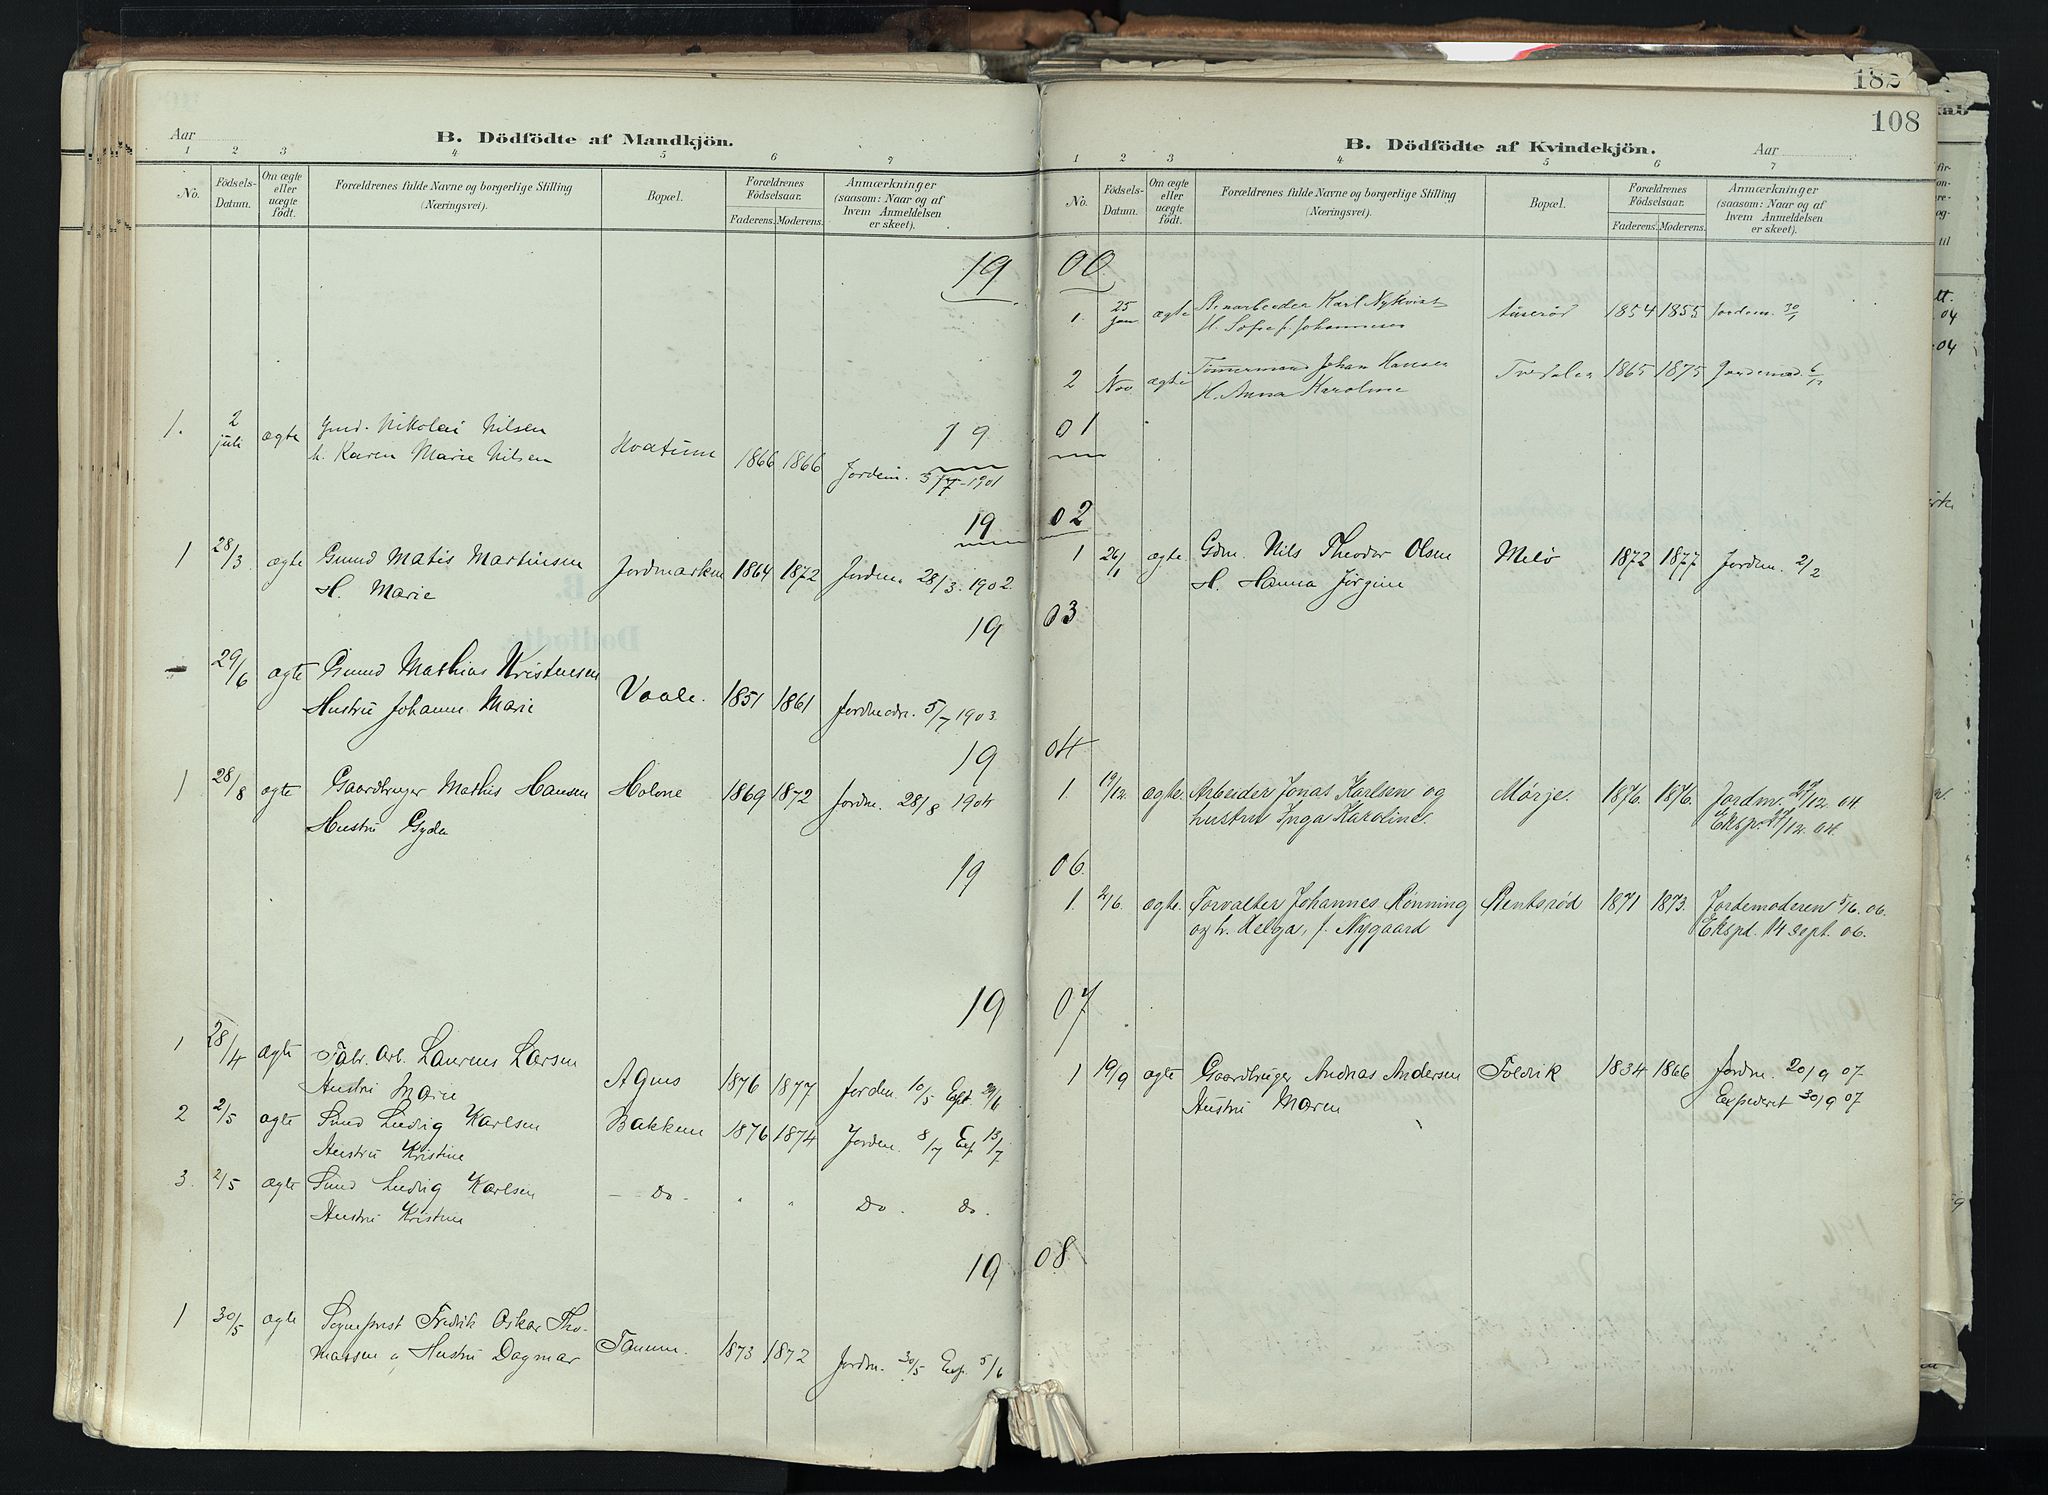 182
108
Aar
B. Dödfödte af Mandkjön.
1 2 3 4 5 6 7
No.
Födsels-Datum.
Om ægte eller uægte födt.
Forældrenes fulde Navne og borgerlige Stilling (Næringsvei).
Bopæl.
Forældrenes Födselsaar.
Faderens. Moderens.
Anmærkninger (saasom: Naar og af hvem Anmeldelsen er skeet).
1. 2 juli ægte Gmd. Nikolai Nilsen
h. Karen Marie Nilsen
Hvatum 1866 1866 Jordem. 5/7-1901
1 28/3 ægte Gmd Matis Martinsen Jordmarken 1864 1872 Jordm 28/3. 1902.
H. Marie
29/6 ægte Gmd Mathias Kristensen
Hustru Johanne Marie Vaale. 1851 1861 Jordmodr. 5/7 1903.
1 28/8 ægte Gaardbruger Mathis Hansen Holone 1869 1872 Jordm. 28/8 1904
Hustru Gyda
1 28/4 ægte Fabr. arb. Laurens Larsen
Hustru Marie Agnes 1876 1877 Jordem 10/5 Exp. 29/6
2 2/5 ægte Smed Ludvig Karlsen Bakken 1876 1874 Jordem. 8/7 Exp 13/7
Hustru Kristine
3. 2/5 ægte Smed Ludvig Karlsen - Do - " " Do. do.
Hustru Kristine
1 30/5 ægte Sogneprest Fredrik Oskar Tho-
massen og Hustru Dagmar Tanum. 1873 1872 Jordm. 30/5 Exp. 5/6
B. Dödfödte af Kvindekjön.
Aar
1 2 3 4 5 6 7
No.
Födsels-Datum.
Om ægte eller uægte födt.
Forældrenes fulde Navne og borgerlige Stilling (Næringsvei).
Bopæl.
Forældrenes Födselsaar.
Faderens. Moderens.
Anmærkninger (saasom: Naar og af hvem Anmeldelsen er skeet).
19 00
1. 25 Jan ægte Karl Nykvist
H. Sofie f. Johannesen
1854 1855 Jordem. 30/1
2 Nov ægte Tømmermand Johan Hansen
H. Anna Karoline
Tvedalen 1865 1875 Jordemod.
19 01
19 02
1 26/1 ægte Gdm. Nils Theodor Olsen Melø 1872 1877 Jordm. 2/2
H. Hanna Jørgine
19 03
19 04
1. 19/12. ægte. Arbeider Jonas Karlsen og Mørje. 1876. 1876. Jordm. 27/12. 04.
hustru Inga Karoline. Eksp. 27/12. 04.
19 06.
1. 2/6. ægte. Forvalter Johannes Rønning 1871 1873. Jordemoderen 5/6. 06.
og h. Helga, f. Nygaard Ekspd. 14 sept. 06.
19 07
1 19/9 ægte Gaardbruger Andreas Andersen Foldvik 1834 1866 Jordm. 20/9 07
Hustru Maren Expederet 30/9 07
19 08